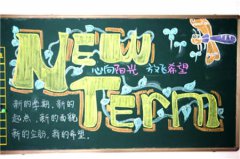 New
心向阳光 放飞希望
Term
新的学期、新的
起点、新的面貌
新的企盼、我的希望。